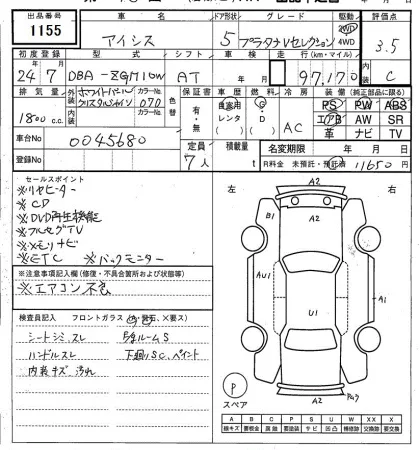 出品番号 車名 ドア形状 グレード 駆動 評価点
1155 アイシス 5 プラタナVセレクション 2WD 4WD 3.5
初度登録 型式 シフト 車検 走行(km・マイル) 内装
24年7月 DBA-ZGM10W AT 年 月 97,170 C
排気量 外装 ホワイトパール クリスタルシャイン カラーNo. 070 色替 保証書 車歴 燃料 冷房 装備(純正部品に限る)
1800 c.c. 内装 カラーNo. 有・無 自家用 レンタ G・D AC PS PW ABS
エアB AW SR
革 ナビ TV
車台No 0045680 定員 7人 積載量 t 名変期限 年 月 日
登録No R料金 未預託・預託済 11650円
セールスポイント
※リヤヒーター
※CD
※DVD再生機能
※フルセグTV
※メモリナビ
※ETC ※バックモニター
※注意事項記入欄(修復・不具合箇所および状態等)
※エアコン不良
検査員記入 フロントガラス
シートシミ、スレ 5室ルームS
ハンドルスレ 下廻りSC、ペイント
内装キズ 汚れ
左 右
A2
B1
A2
AU1
U1
A1
A2
P スペア
A B C P S U W X XX
線キズ 要板金 腐蝕 要塗装 サビ 凹凸 補修跡 交換跡 要交換